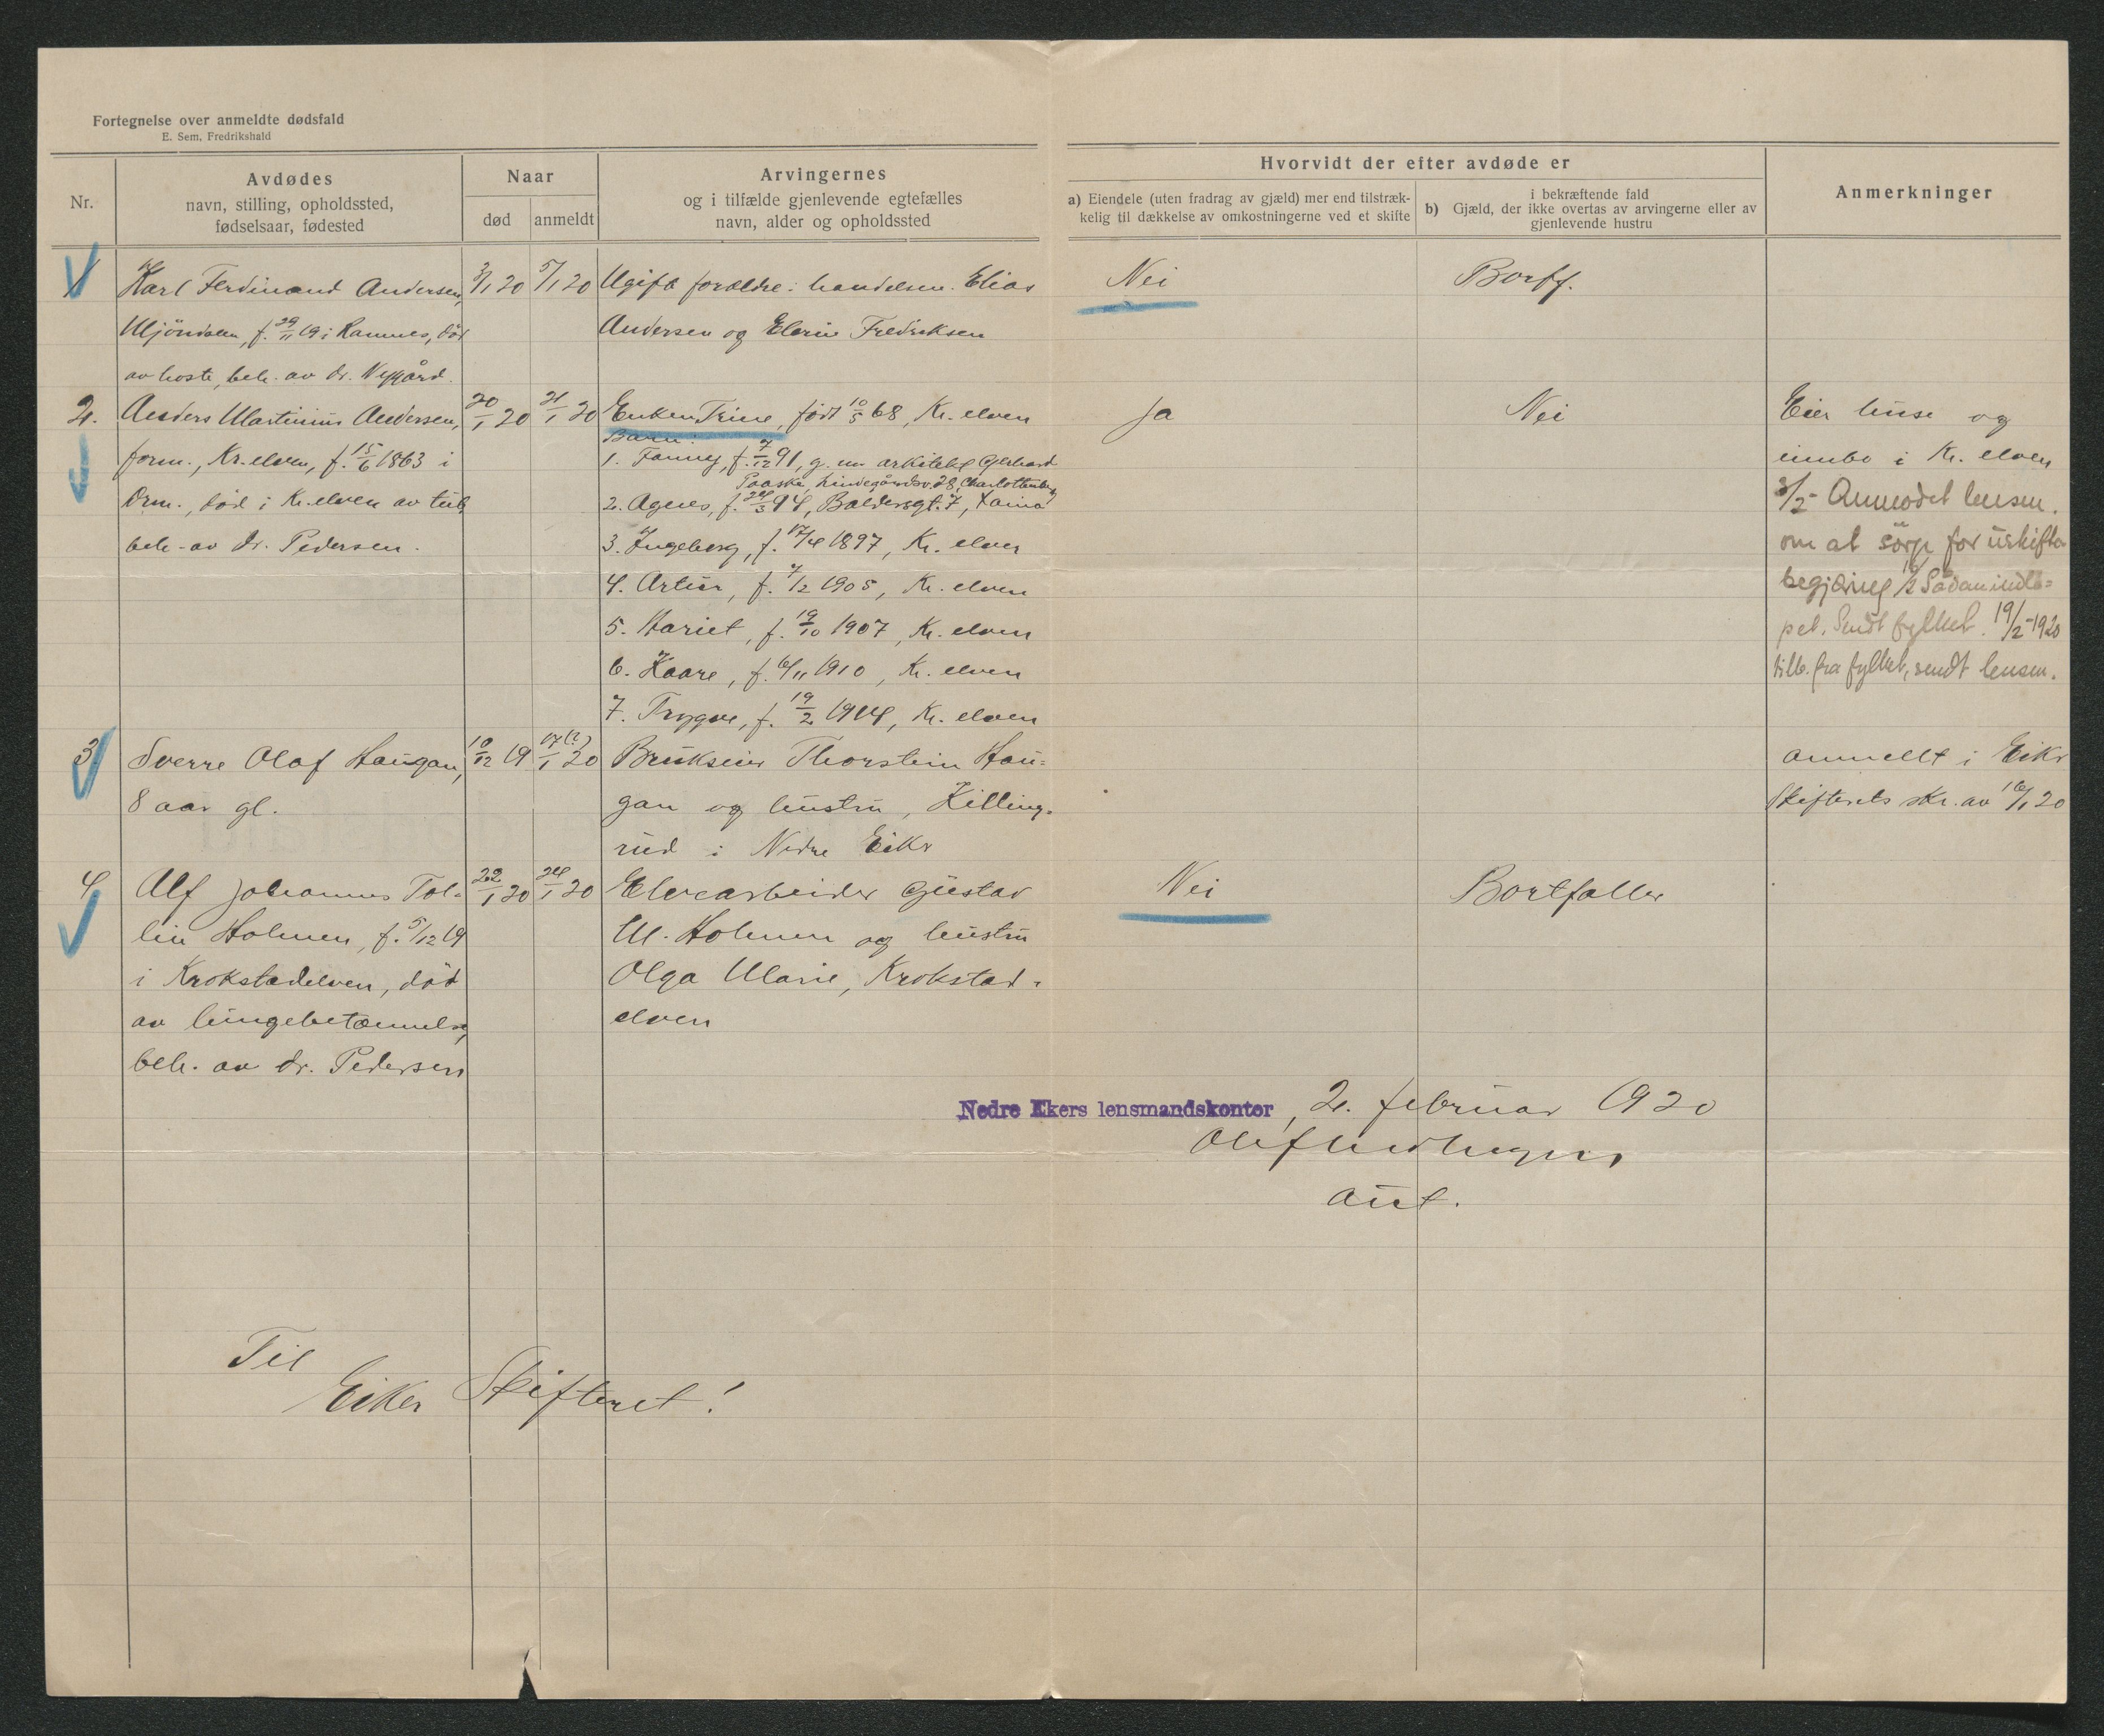 Fortegnelse over anmeldte dødsfald
E. Sem, Fredrikshald
Nr.
Avdødes
navn, stilling, opholdssted,
fødselsaar, fødested
Naar
død
anmeldt
Arvingernes
og i tilfælde gjenlevende egtefælles
navn, alder og opholdssted
Hvorvidt der efter avdøde er
a) Eiendele (uten fradrag av gjæld) mer end tilstræk-
kelig til dækkelse av omkostningerne ved et skifte
i bekræftende fald
b) Gjæld, der ikke overtas av arvingerne eller av
gjenlevende hustru
Anmerkninger
1
Karl Ferdinand Andersen,
Mjöndalen, f. 29/11 19 i Ramnes, död
av hoste, beh. av dr. Nygård.
3/1 20
5/1 20
Ugift forældre: handelsm. Elias
Andersen og Elerie Fredriksen
Nei
Bortf.
2.
Anders Martinius Andersen,
form., Kr.elven, f. 15/6 1863 i
Drm., död i Kr.elven av tub.
beh. av dr. Pedersen.
20/1 20
21/1 20
Enken Trine, født 10/5 68, Kr. elven
Barn:
1. Fanny, f. 7/12 91, g. m. arkitekt Gerhard
Paaske, Lindegårdsv. 28, Charlottenberg
2. Agnes, f. 24/3 94, Baldersgt. 7, Xania
3. Ingeborg, f. 17/4 1897, Kr. elven
4. Artur, f. 7/2 1905, Kr. elven
5. Hariet, f. 19/10 1907, Kr. elven
6. Kaare, f. 6/11 1910, Kr. elven
7. Trygve, f. 19/2 1914, Kr. elven
Ja
Nei
Eier huse og
innbo i Kr. elven
3/2- Anmodet lensm.
om at sörge for uskifte-
begjæring. Sådan indlö-
pet. Sendt fylket. 19/2-1920
tilb. fra fylket, sendt lensm.
3
Sverre Olaf Haugan,
8 aar gl.
10/12 19
17(?)/1 20
Brukseier Thorstein Hau-
gan og hustru, Killing-
rud i Nedre Eiker
anmeldt i Eiker
Skifterets skr. av 16/1 20
4
Alf Johannes Tol-
lin Holmen, f. 5/12 19
i Krokstadelven, död
av lungebetænnelse,
beh. av dr. Pedersen
22/1 20
24/1 20
Elvearbeider Gustav
M. Holmen og hustru
Olga Marie, Krokstad-
elven
Nei
Bortfaller
Nedre Ekers lensmandskontor, 2. februar 1920
aut.
Til
Eiker Skifteret!